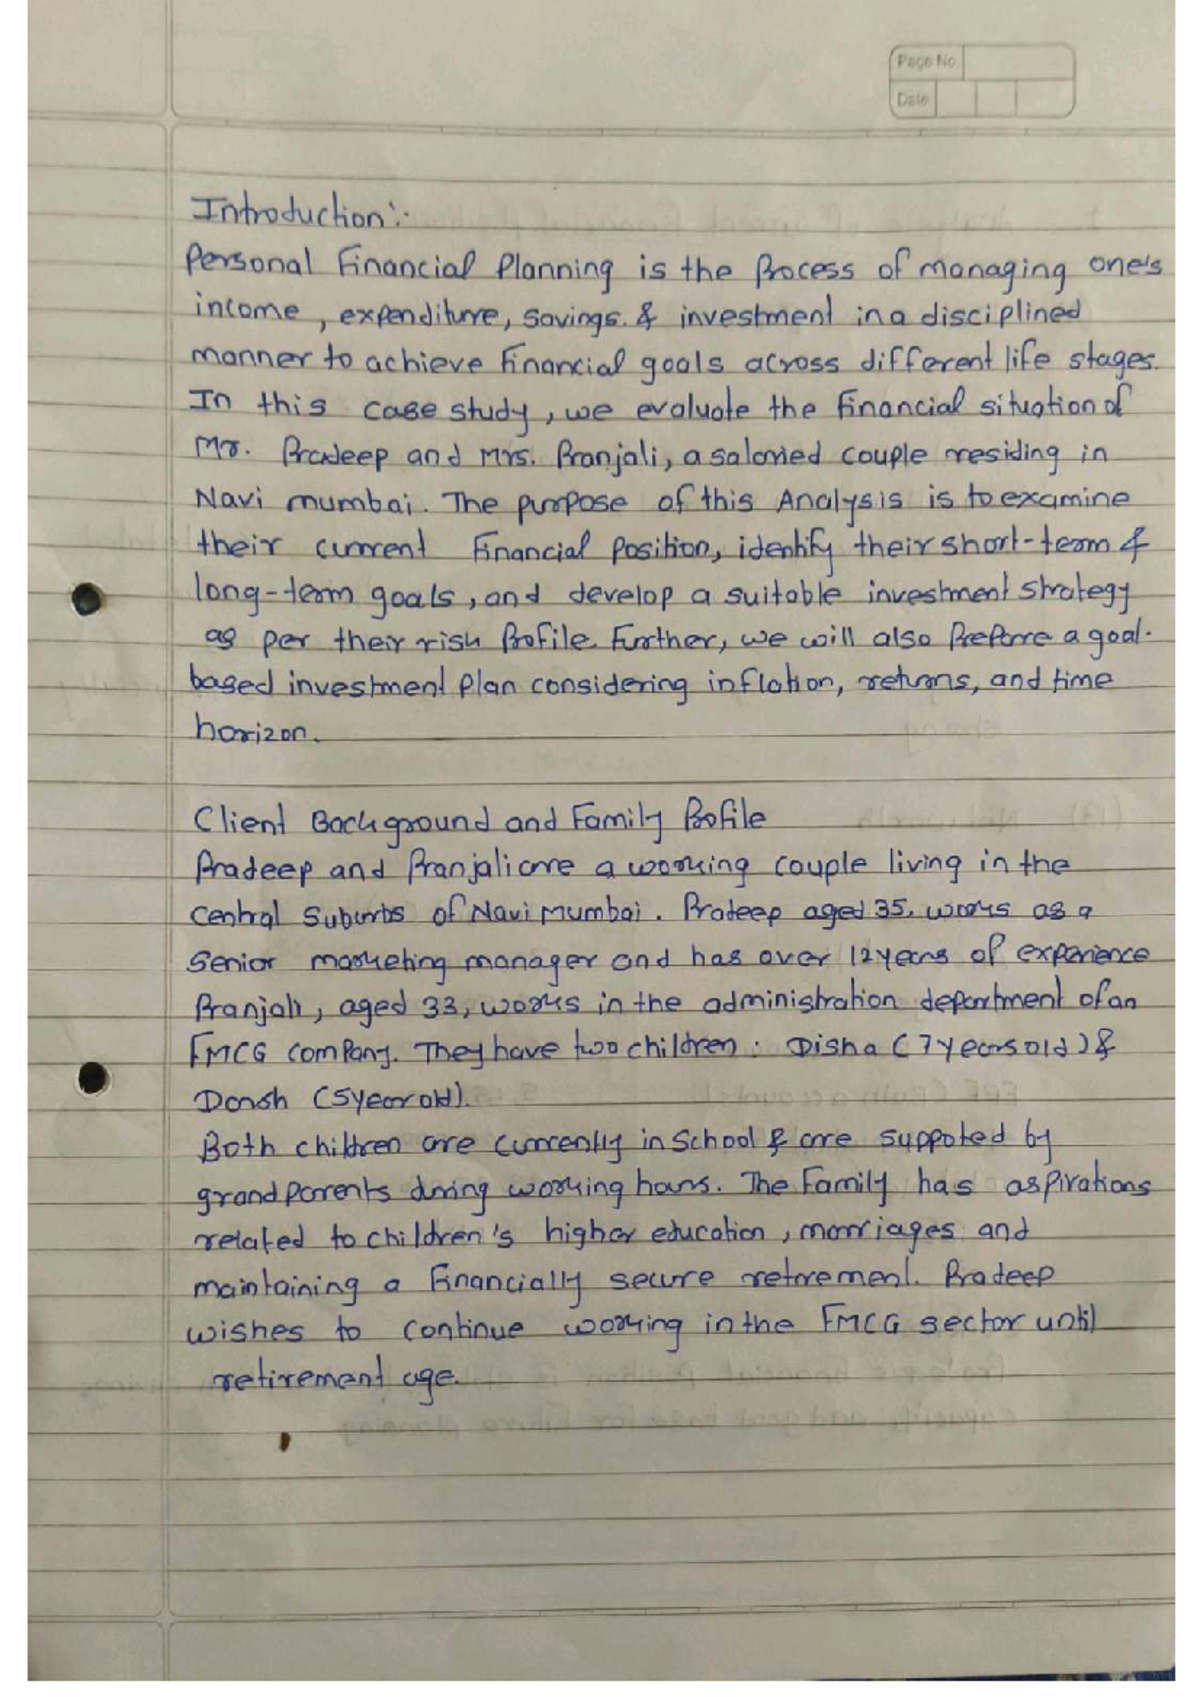 Page No.
Date
Introduction:-
Personal Financial Planning is the Process of managing one's
income, expenditure, savings. & investment in a disciplined
manner to achieve Financial goals across different life stages.
In this case study, we evaluate the Financial situation of
Mr. Pradeep and Mrs. Pranjali, a salaried couple residing in
Navi mumbai. The purpose of this Analysis is to examine
their current Financial Position, identify their short-term &
long-term goals, and develop a suitable investment strategy
as per their risk Profile. Further, we will also Prepare a goal-
based investment Plan considering inflation, returns, and time
horizon.
Client Background and Family Profile
Pradeep and Pranjali are a working couple living in the
Central Suburbs of Navi Mumbai. Pradeep aged 35, works as a
Senior marketing manager and has over 12 years of experience
Pranjali, aged 33, works in the administration department of an
FMCG company. They have two children: Disha (7 years old) &
Darsh (5 year old).
Both children are currently in School & are suppoted by
grandparents during working hours. The Family has aspirations
related to children's higher education, marriages and
maintaining a Financially secure retirement. Pradeep
wishes to continue working in the FMCG sector until
retirement age.